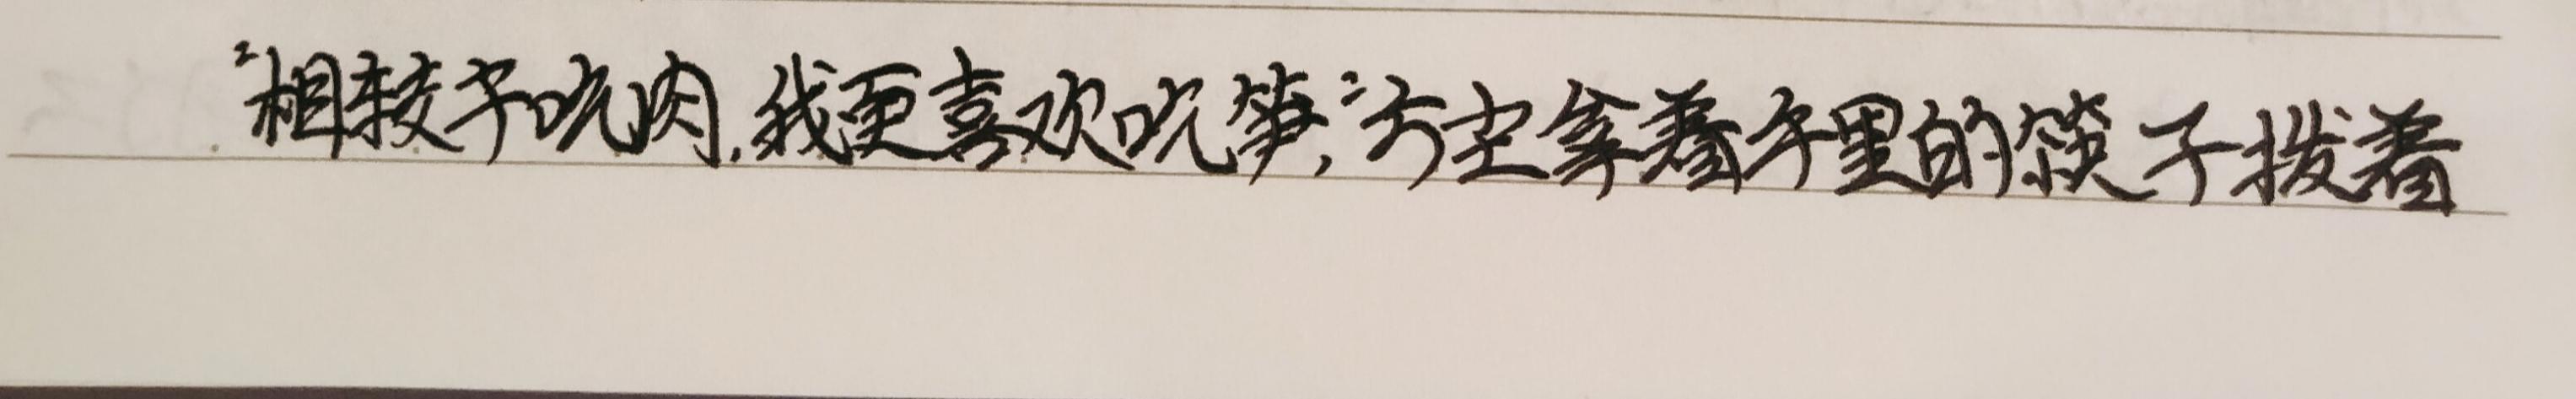 “相较于吃肉，我更喜欢吃笋，”方主拿着手里的筷子拨着